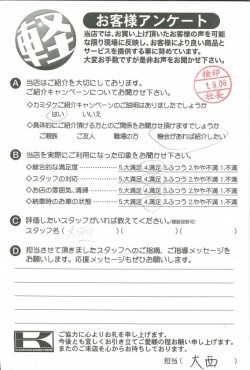 軽
お客様アンケート
当店では、お買い上げ頂いたお客様の声を可能
な限り現場に反映し、お客様により良い商品と
サービスを提供する事に努めています。
大変お手数ですが是非お声をお聞かせ下さい。
検印
1.9.06
社長
A 当店はご紹介を大切にしております。
ご紹介キャンペーンについてお聞かせ下さい。
・カミタケご紹介キャンペーンのご説明はありましたでしょうか
はい いいえ
・具体的にご紹介頂ける方との関係をお聞かせ頂けますでしょうか
ご親族 ご友人 職場の方 機会があれば紹介したい
B 当店を実際にご利用になった印象をお聞かせ下さい。
◇総合的な満足度 5.大満足 4.満足 3.ふつう 2.やや不満 1.不満
◇スタッフの対応 5.大満足 4.満足 3.ふつう 2.やや不満 1.不満
◇お店の雰囲気、清掃 5.大満足 4.満足 3.ふつう 2.やや不満 1.不満
◇納車時のお車の状態 5.大満足 4.満足 3.ふつう 2.やや不満 1.不満
C 評価したいスタッフがいれば教えてください。(複数回答可)
スタッフ名( 大西 )( )( )
D 担当させて頂きましたスタッフへのご指摘、ご指導メッセージを
お願いします。応援メッセージもぜひお願いします。
K
ご協力に心よりお礼を申し上げます。
今後とも宜しくお引き立てご愛顧の程お願い申し上げます。
またのご来店を心からお待ちしております。
担当( 大西 )